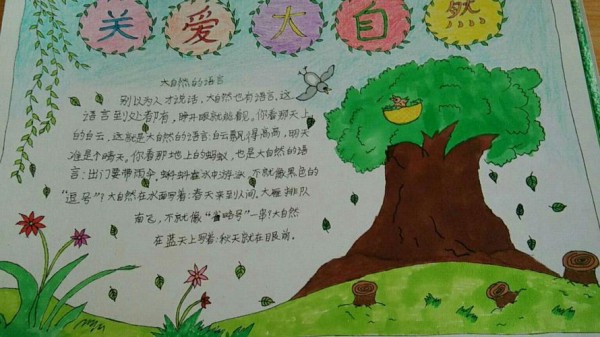 关爱大自然
大自然的语言
别以为人才说话，大自然也有语言，这
语言到处都有，睁开眼就能看见。你看那天上
的白云，这就是大自然的语言：白云飘得高高，明天
准是个晴天。你看那地上的蚂蚁，也是大自然的语
言：出门要带雨伞。蝌蚪在水中游泳，不就像黑色的
“逗号”？大自然在水面写着：春天来到人间。大雁排队
南飞，不就像“省略号”一串？大自然
在蓝天上写着：秋天就在眼前。